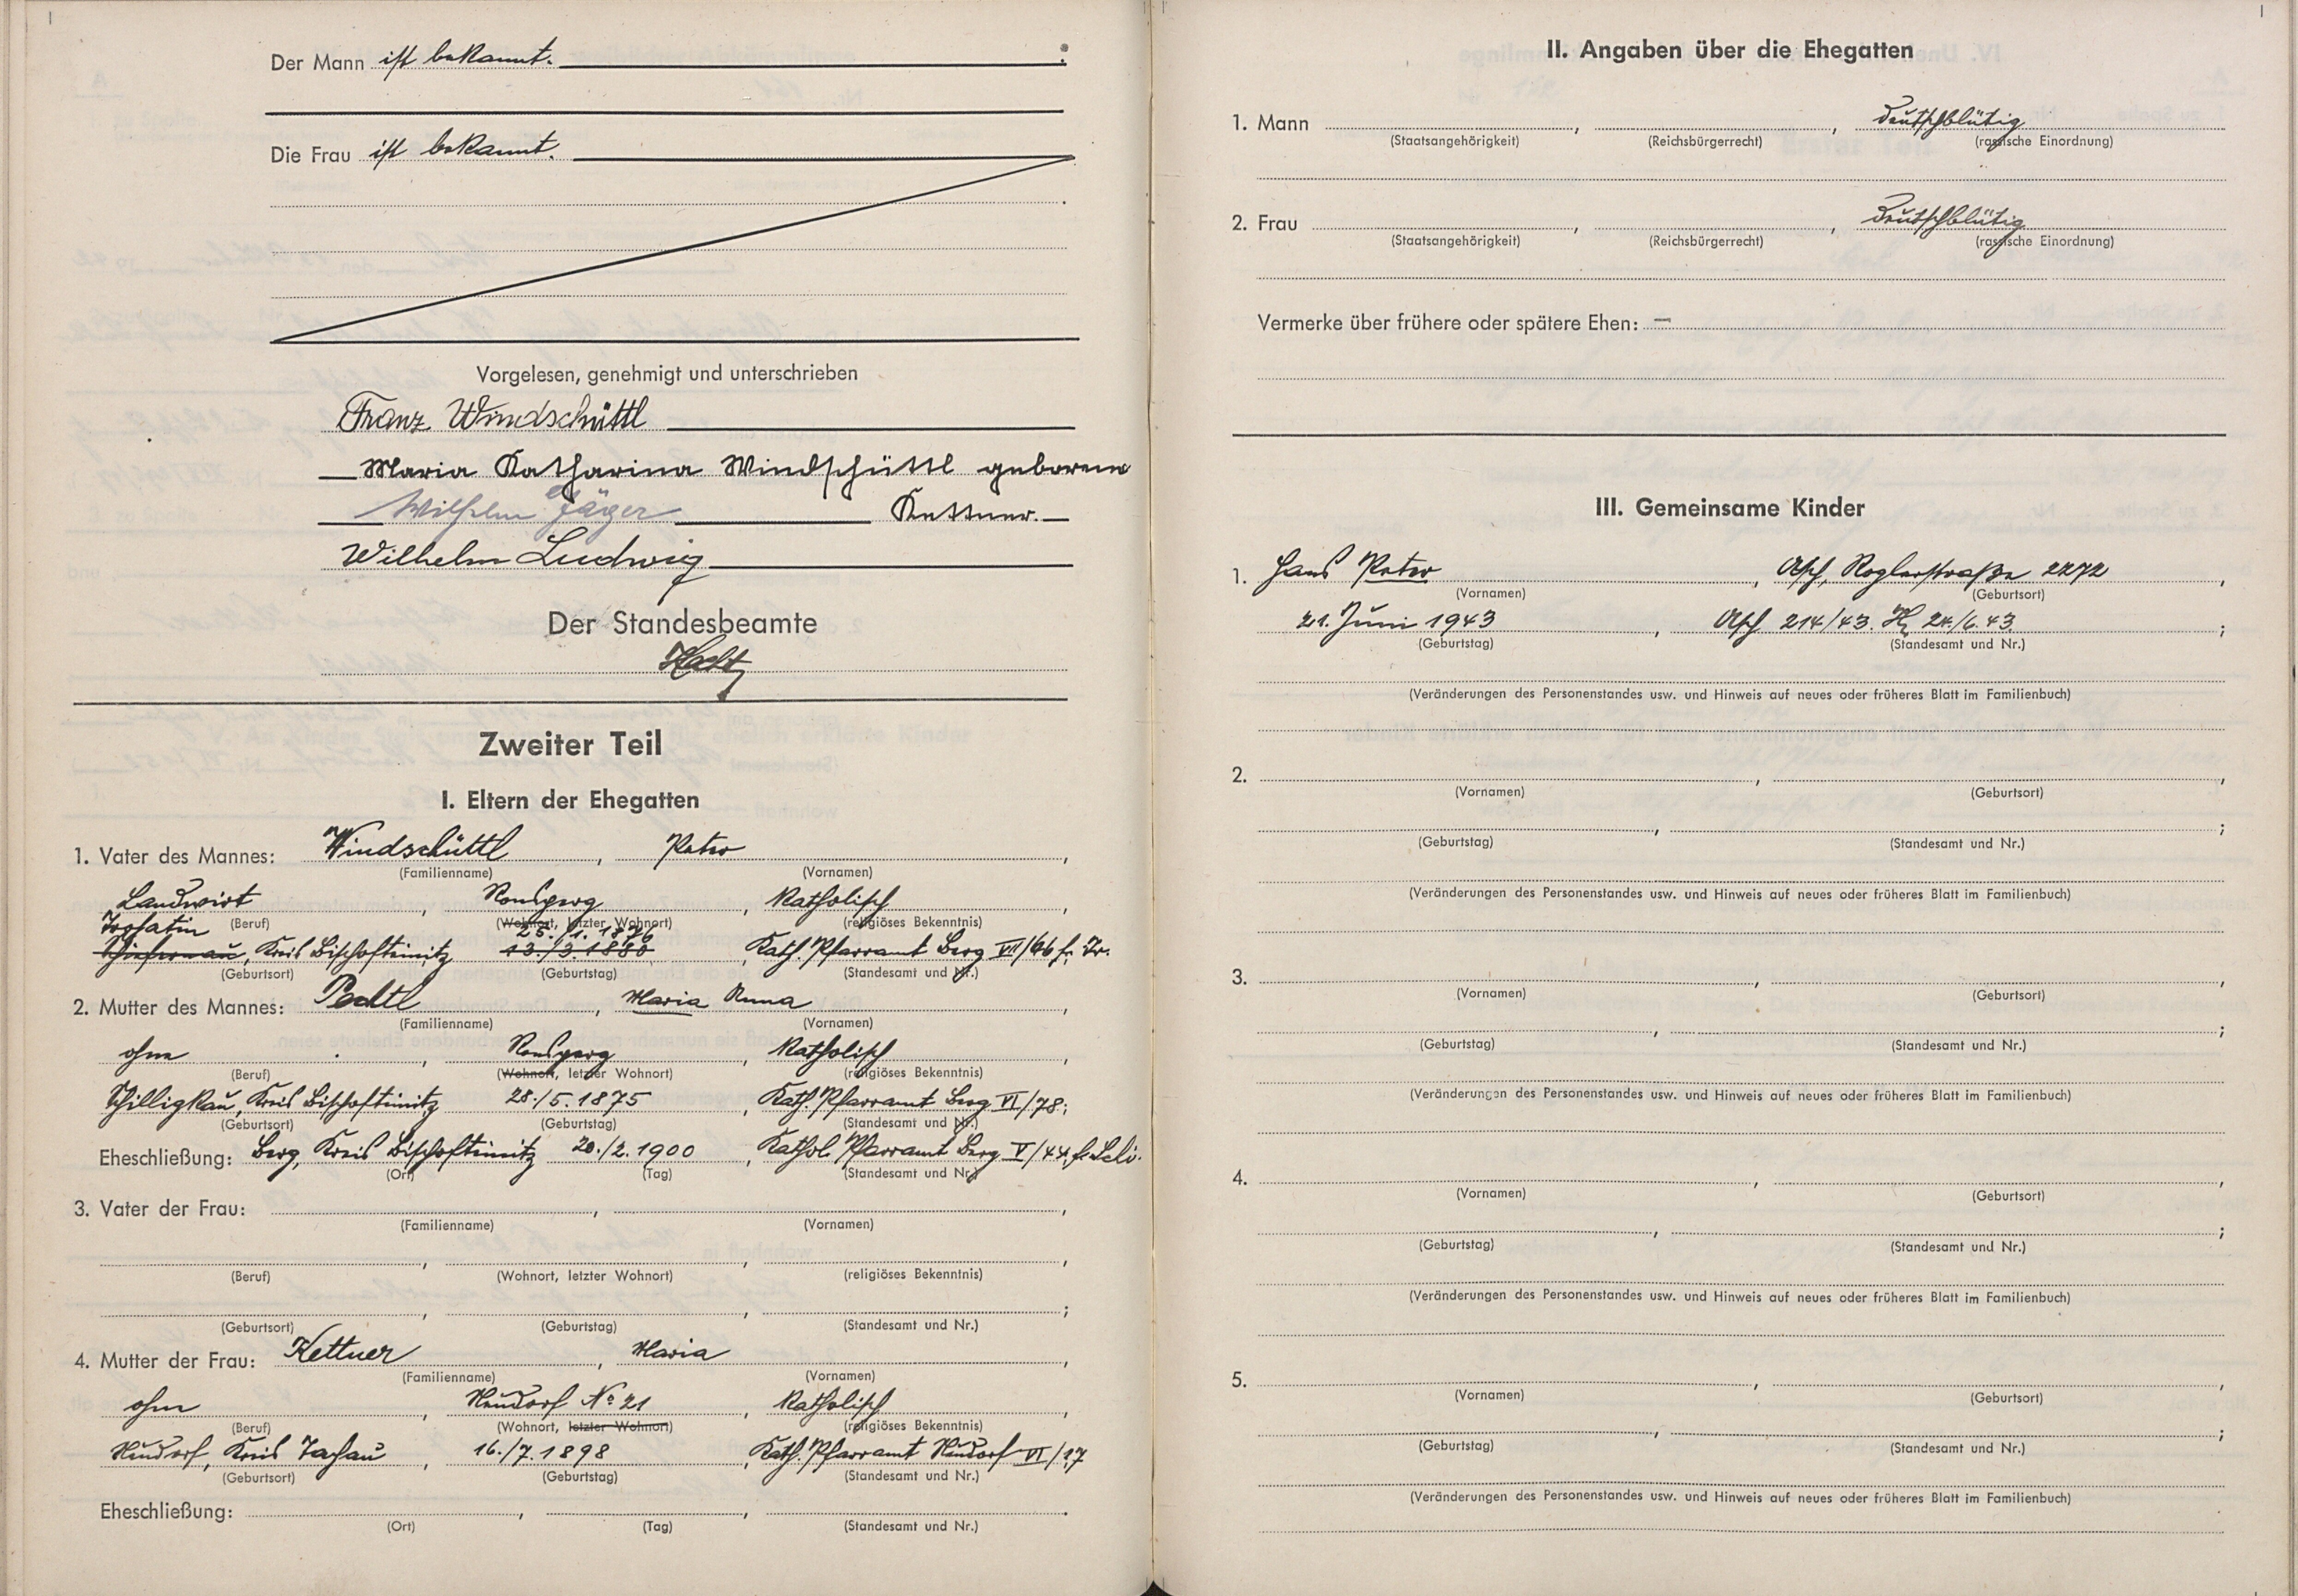 Der Mann ist bekannt.
Die Frau ist bekannt.
Vorgelesen, genehmigt und unterschrieben
Franz Windschüttl
Maria Katharina Windschüttl geborene
Wilhelm Jäger Kettner.
Wilhelm Ludwig
Der Standesbeamte
Zweiter Teil
I. Eltern der Ehegatten
1. Vater des Mannes: Windschüttl, Peter,
(Familienname) (Vornamen)
Landwirt, Ronsperg, Katholisch,
(Beruf) (Wohnort, letzter Wohnort) (religiöses Bekenntnis)
25./1. 1876
Kreis Bischofteinitz 13./3. 1880, Kath. Pfarramt Berg VII/66
(Geburtsort) (Geburtstag) (Standesamt und Nr.)
2. Mutter des Mannes: Pechtl, Maria Anna,
(Familienname) (Vornamen)
ohne, Ronsperg, Katholisch,
(Beruf) (Wohnort, letzter Wohnort) (religiöses Bekenntnis)
Schilligkau, Kreis Bischofteinitz 28./5. 1875, Kath. Pfarramt Berg VI/78;
(Geburtsort) (Geburtstag) (Standesamt und Nr.)
Eheschließung: Berg, Kreis Bischofteinitz 20./2. 1900, Kathol. Pfarramt Berg V/44
(Ort) (Tag) (Standesamt und Nr.)
3. Vater der Frau: , ,
(Familienname) (Vornamen)
(Beruf) (Wohnort, letzter Wohnort) (religiöses Bekenntnis)
(Geburtsort) (Geburtstag) (Standesamt und Nr.)
4. Mutter der Frau: Kettner, Maria,
(Familienname) (Vornamen)
ohne, Neudorf No 21, Katholisch,
(Beruf) (Wohnort, letzter Wohnort) (religiöses Bekenntnis)
Neudorf, Kreis Tachau, 16./7. 1898, Kath. Pfarramt Neudorf VI/17
(Geburtsort) (Geburtstag) (Standesamt und Nr.)
Eheschließung: , ,
(Ort) (Tag) (Standesamt und Nr.)
II. Angaben über die Ehegatten
1. Mann , , Deutschblütig
(Staatsangehörigkeit) (Reichsbürgerrecht) (rassische Einordnung)
2. Frau , , Deutschblütig
(Staatsangehörigkeit) (Reichsbürgerrecht) (rassische Einordnung)
Vermerke über frühere oder spätere Ehen: –
III. Gemeinsame Kinder
1. Hans Peter, Asch, Roglerstraße 2272,
(Vornamen) (Geburtsort)
21. Juni 1943, Asch 214/43. 24./6. 43;
(Geburtstag) (Standesamt und Nr.)
(Veränderungen des Personenstandes usw. und Hinweis auf neues oder früheres Blatt im Familienbuch)
2. , ,
(Vornamen) (Geburtsort)
(Geburtstag) (Standesamt und Nr.)
(Veränderungen des Personenstandes usw. und Hinweis auf neues oder früheres Blatt im Familienbuch)
3. , ,
(Vornamen) (Geburtsort)
(Geburtstag) (Standesamt und Nr.)
(Veränderungen des Personenstandes usw. und Hinweis auf neues oder früheres Blatt im Familienbuch)
4. , ,
(Vornamen) (Geburtsort)
(Geburtstag) (Standesamt und Nr.)
(Veränderungen des Personenstandes usw. und Hinweis auf neues oder früheres Blatt im Familienbuch)
5. , ,
(Vornamen) (Geburtsort)
(Geburtstag) (Standesamt und Nr.)
(Veränderungen des Personenstandes usw. und Hinweis auf neues oder früheres Blatt im Familienbuch)